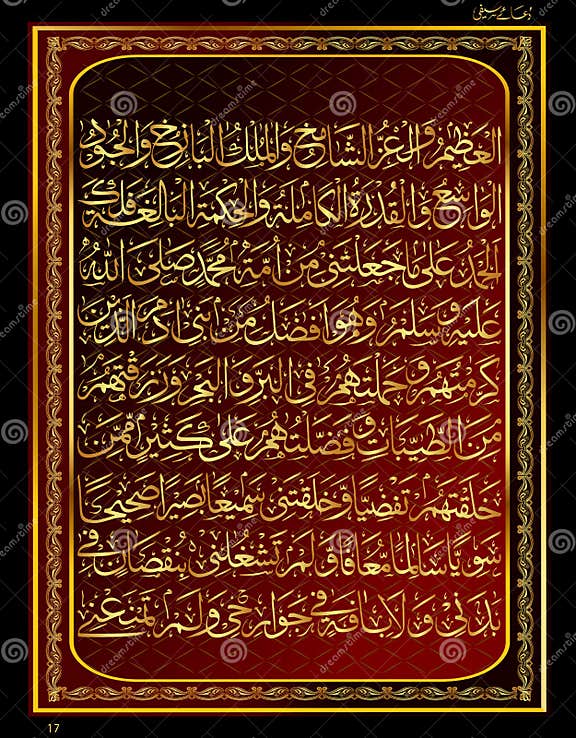 دعائے سیفی
العَظِيْمُ وَالْعِزُّ الشَّامِخُ وَالْمُلْكُ الْبَاذِخُ وَالْجُوْدُ
الْوَاسِعُ وَالْقُدْرَةُ الْكَامِلَةُ وَالْحِكْمَةُ الْبَالِغَةُ فَلَكَ
الْحَمْدُ عَلٰى مَا جَعَلْتَنِيْ مِنْ اُمَّةِ مُحَمَّدٍ صَلَّى اللّٰهُ
عَلَيْهِ وَسَلَّمَ وَهُوَ اَفْضَلُ مِنْ بَنِيْ اٰدَمَ الَّذِيْنَ
كَرَّمْتَهُمْ وَحَمَلْتَهُمْ فِي الْبَرِّ وَالْبَحْرِ وَرَزَقْتَهُمْ
مِنَ الطَّيِّبَاتِ وَفَضَّلْتَهُمْ عَلٰى كَثِيْرٍ مِّمَّنْ
خَلَقْتَهُمْ تَفْضِيْلًا وَّخَلَقْتَنِيْ سَمِيْعًا بَصِيْرًا صَحِيْحًا
سَوِيًّا سَالِمًا مُّعَافًا وَّلَمْ تَشْغَلْنِيْ بِنُقْصَانٍ فِيْ
بَدَنِيْ وَلَا بِاٰفَةٍ فِيْ جَوَارِحِيْ وَلَمْ تَمْنَعْنِيْ
17